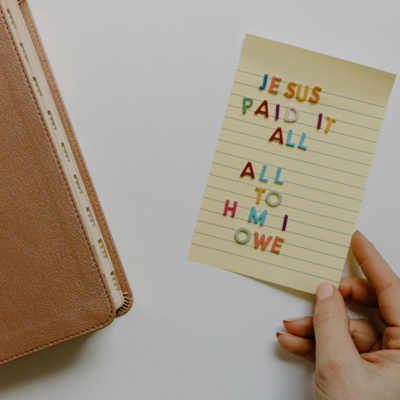 JESUS
PAID IT
ALL
ALL
TO
HM I
OWE